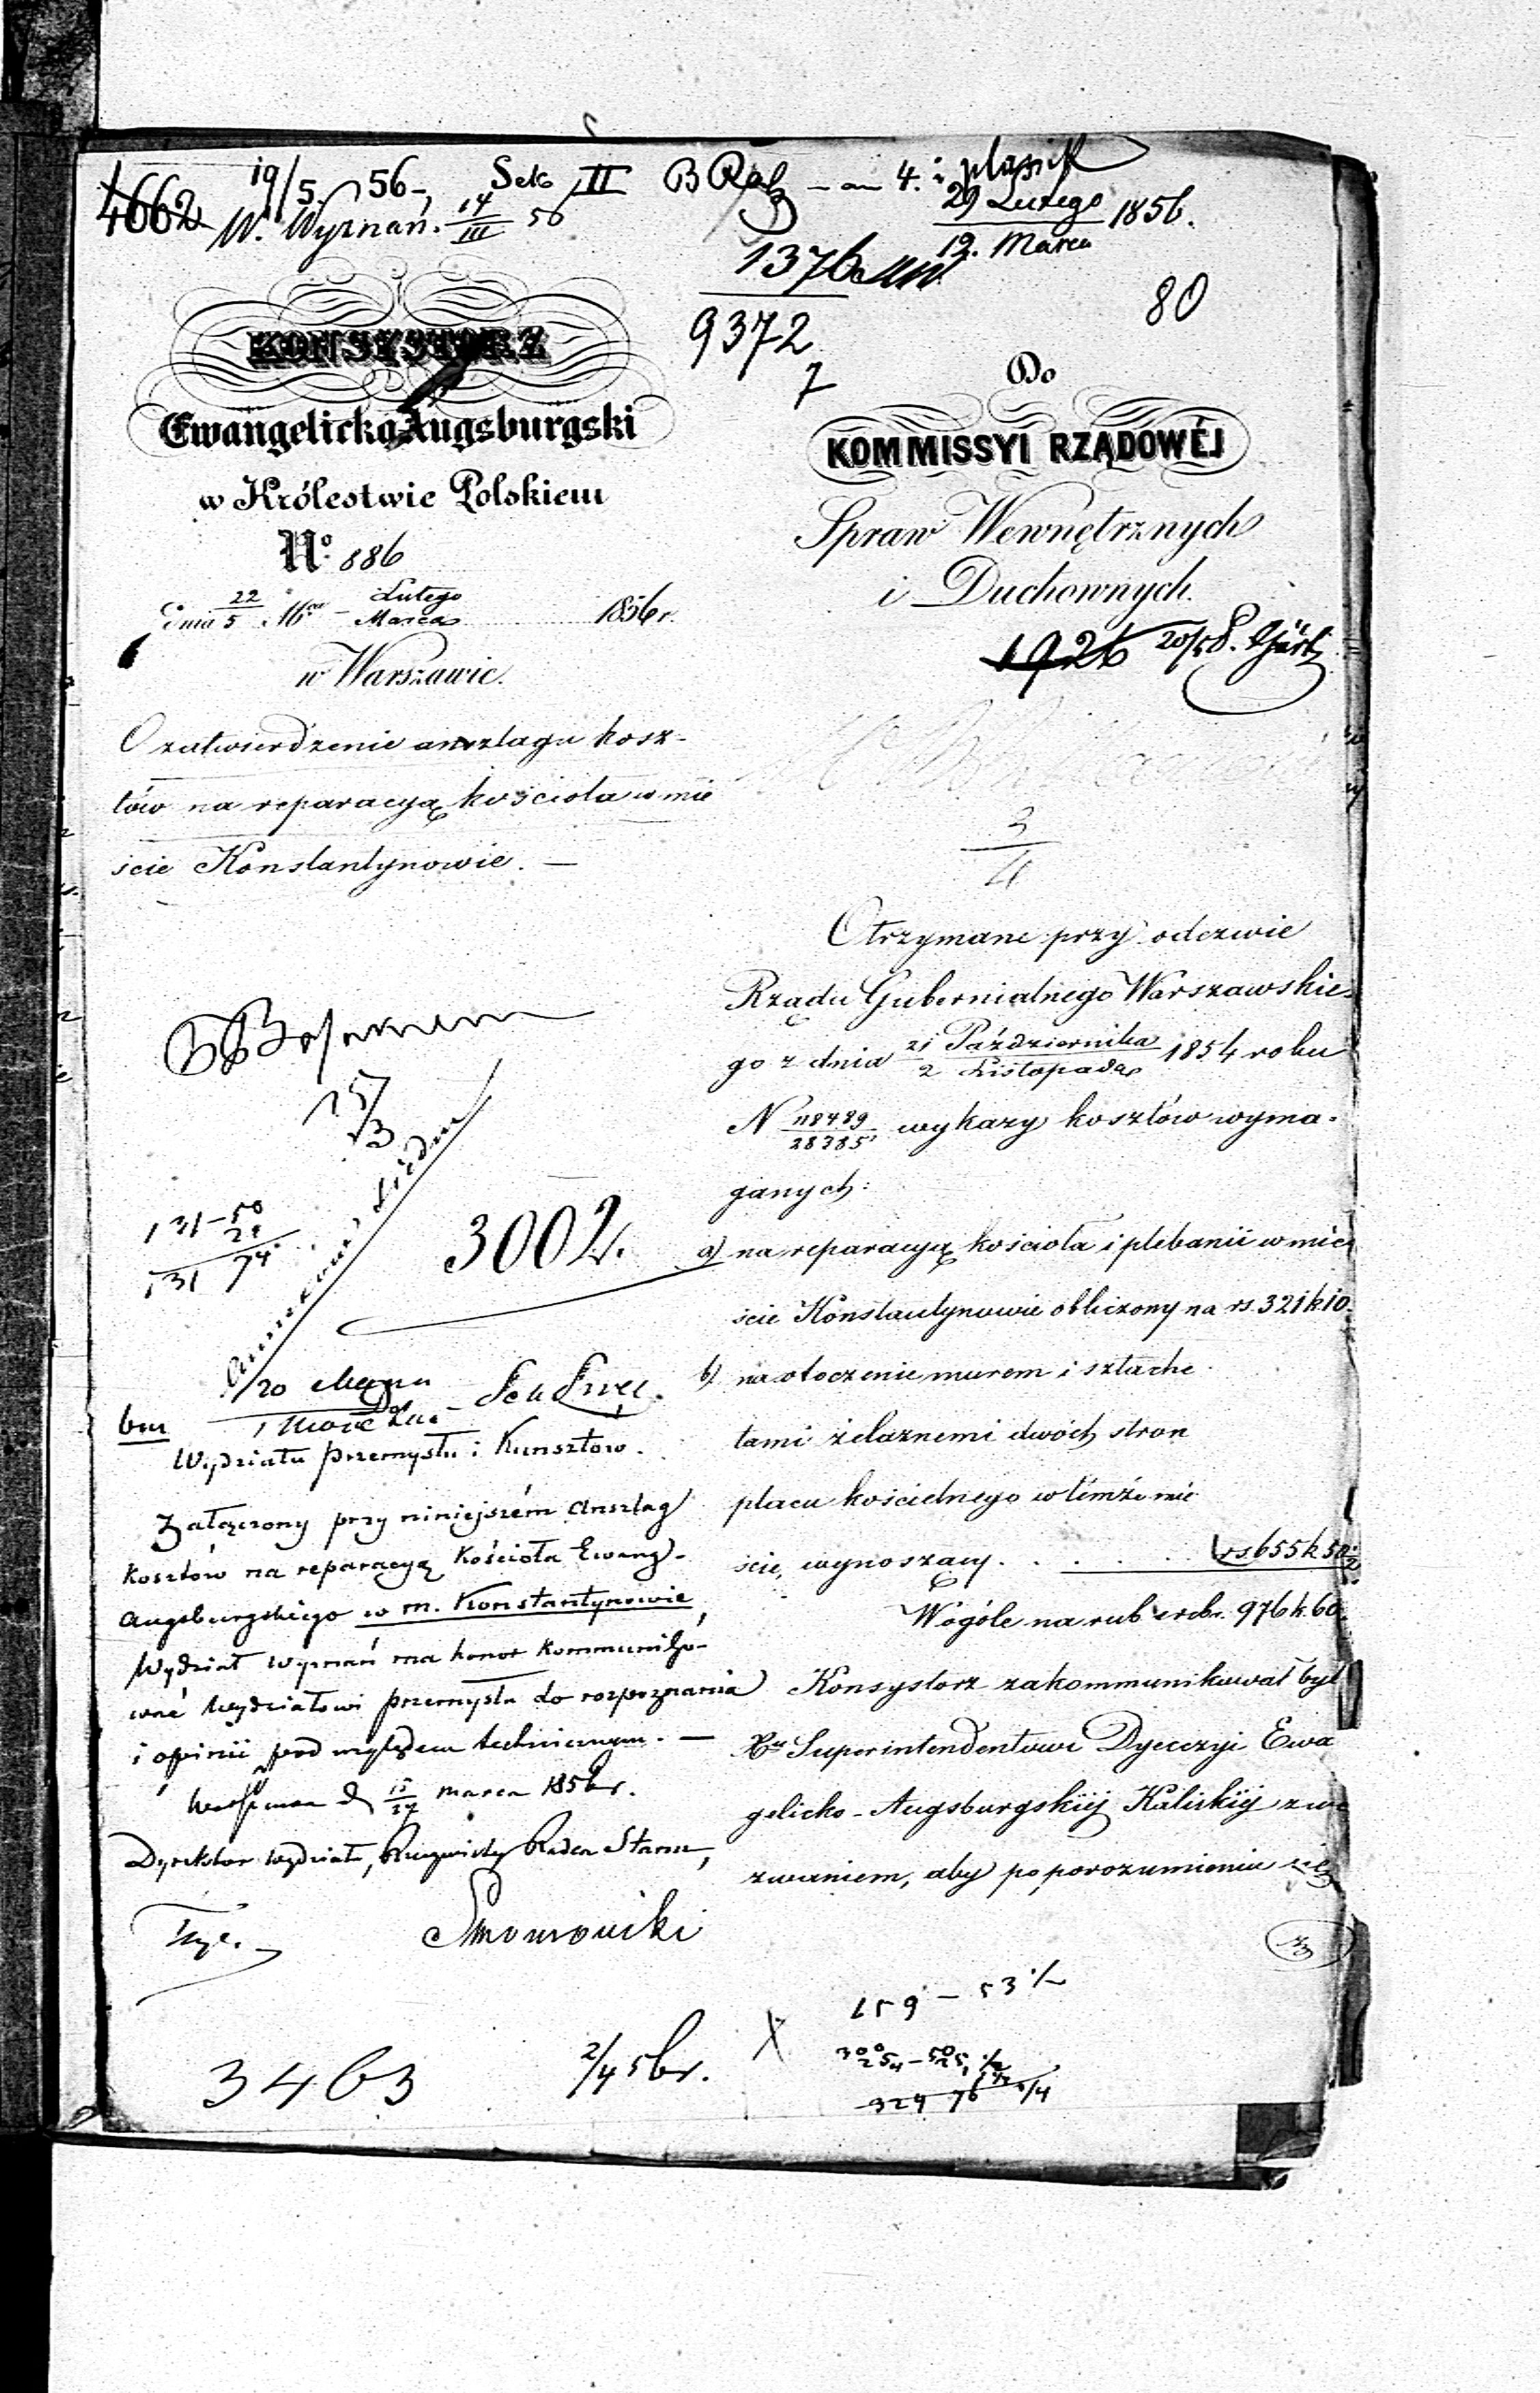 4662
19/5 56 Sek II
W. Wyznań. 14/III 56
29 Lutego
12. Marca 1856.
1376
9372
7
80
KONSYSTORZ
Ewangelicko Augsburgski
w Królestwie Polskiem
No. 886
dnia 22/5 Lutego/Marca 1856 r.
w Warszawie.
O zatwierdzenie anszlagu kosz-
tów na reparacyą kościoła w mie
ście Konstantynowie. —
Do
KOMMISSYI RZĄDOWÉJ
Spraw Wewnętrznych
i Duchownych.
1926
3
4
Otrzymane przy odezwie
Rządu Gubernialnego Warszawskie-
go z dnia 21 Października / 2 Listopada 1854 roku
N 118489/28385 wykazy kosztów wyma-
ganych:
a) na reparacyą kościoła i plebanii w mie
ście Konstantynowie obliczony na rs. 321 k. 10.
b) na otoczenie murem i sztache
tami żelaznemi dwóch stron
placu kościelnego w témże mie
ście, wynoszący. . . . . . rs. 655 k. 50
Wogóle na rub srebr. 976 k. 60
Konsystorz zakommunikował był
Superintendentowi Dyecezyi Ewa
gelicko-Augsburgskiéj Kaliskiéj z we
zwaniem, aby po porozumieniu się
15/3
131-50
131 74
3002.
bm
Wydziału Przemysłu i Kunsztów.
Załączony przy niniejszém anszlag
kosztów na reparacyą Kościoła Ewang-
Augsburgskiego w m. Konstantynowie,
Wydział wyznań ma honor kommuniko-
wać Wydziałowi przemysłu do rozpoznania
i opinii pod względem technicznym. —
Warszawa d 15/27 marca 1856 r.
Dyrektor Wydziału, Rzeczywisty Radca Stanu,
3463
2/4 56 r.
159 - 53 1/2